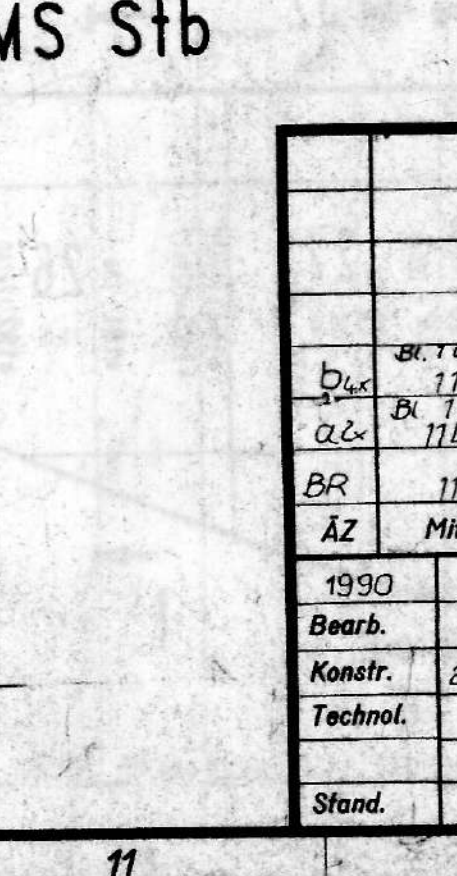 MS Stb
Bl. 1
b4x 11
Bl 1
a2x 11
BR 11
ÄZ Mit
1990
Bearb.
Konstr.
Technol.
Stand.
11